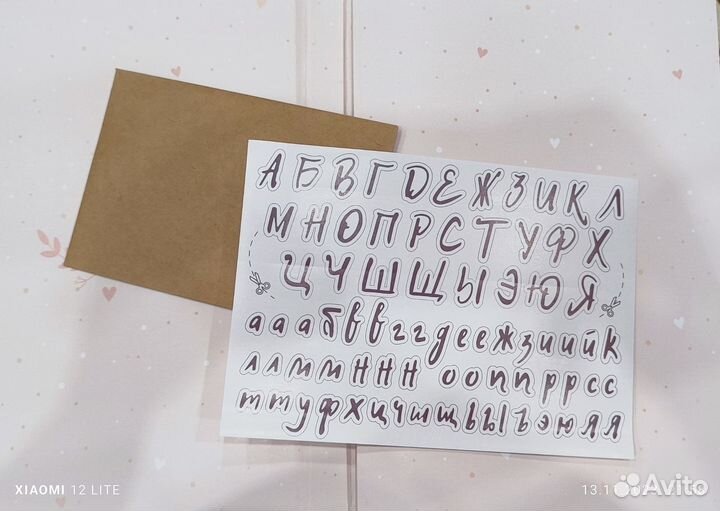 АБВГДЕЖЗИКЛ
МНОПРСТУФХ
ЦЧШЩЫЭЮЯ
ааабввггдеежзиийк
ллммннн ооппррсс
ттуфхцчшщьыъэюяя
XIAOMI 12 LITE
Avito